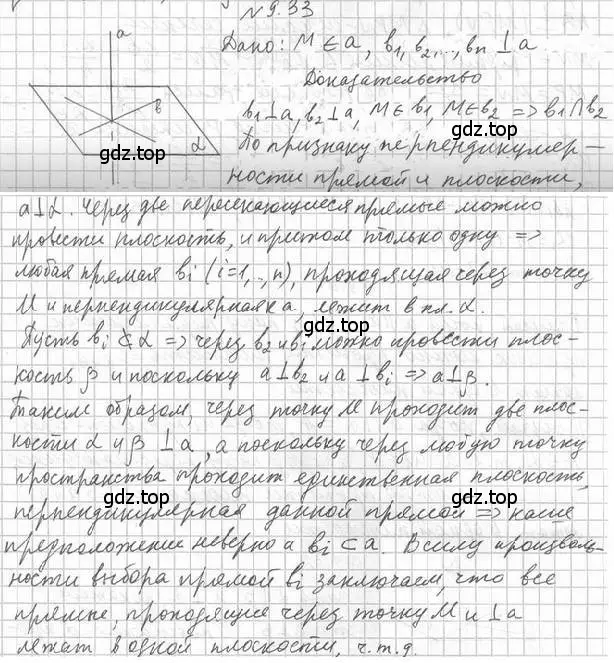 N 9.33
a
Дано: M ∈ a, b₁, b₂, ..., bn ⊥ a
Доказательство
b
b₁⊥a, b₂⊥a, M∈b₁, M∈b₂ => b₁∩b₂
gdz.top
α
gdz.top
По признаку перпендикуляр-
ности прямой и плоскости,
a⊥α. Через две пересекающиеся прямые можно
провести плоскость, и притом только одну =>
любая прямая bi (i=1,..,n), проходящая через точку
M и перпендикулярная к a, лежит в пл. α.
gdz.top
Пусть bi ⊄ α => через b₂ и bi можно провести плос-
кость β и поскольку a⊥b₂ и a⊥bi => a⊥β.
Таким образом, через точку M проходит две плос-
gdz.top
кости α и β ⊥ a, а поскольку через любую точку
пространства проходит единственная плоскость,
перпендикулярная данной прямой => наше
gdz.top
предположение неверно и bi ⊂ a. В силу произволь-
ности выбора прямой bi заключаем, что все
прямые, проходящие через точку M и ⊥ a
gdz.top
лежат в одной плоскости, ч.т.д.